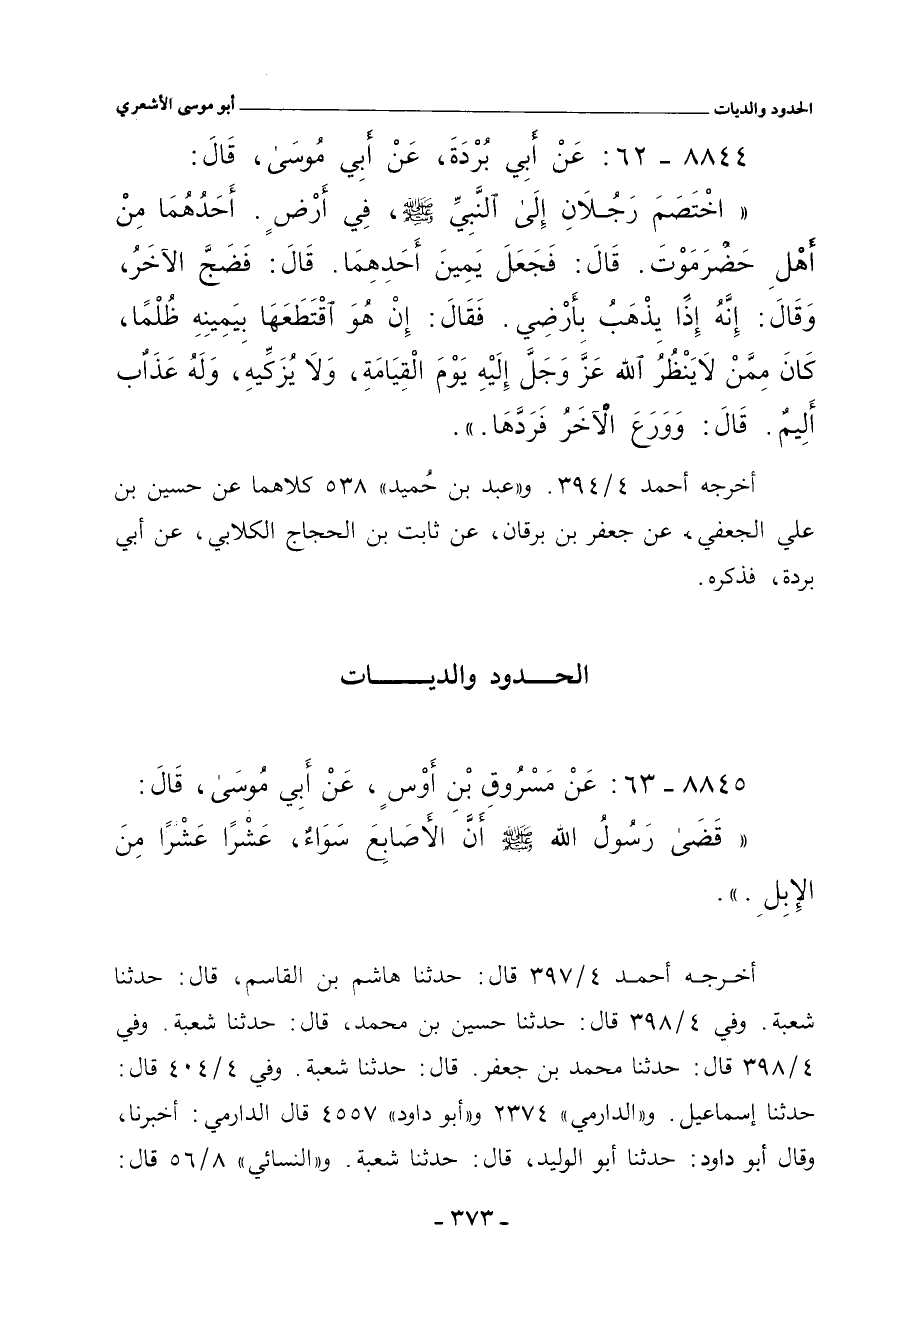 الحدود والديات ــــــــــــــــــــ أبو موسى الأشعري
٨٨٤٤ - ٦٢: عَنْ أَبِي بُرْدَةَ، عَنْ أَبِي مُوسَىٰ، قَالَ:
« اخْتَصَمَ رَجُلَانِ إِلَىٰ ٱلنَّبِيِّ ﷺ، فِي أَرْضٍ. أَحَدُهُمَا مِنْ
أَهْلِ حَضْرَمَوْتَ. قَالَ: فَجَعَلَ يَمِينَ أَحَدِهِمَا. قَالَ: فَضَجَّ الآخَرُ،
وَقَالَ: إِنَّهُ إِذًا يَذْهَبُ بِأَرْضِي. فَقَالَ: إِنْ هُوَ ٱقْتَطَعَهَا بِيَمِينِهِ ظُلْمًا،
كَانَ مِمَّنْ لَايَنْظُرُ ٱلله عَزَّ وَجَلَّ إِلَيْهِ يَوْمَ الْقِيَامَةِ، وَلَا يُزَكِّيهِ، وَلَهُ عَذَابٌ
أَلِيمٌ. قَالَ: وَوَرَعَ الْآخَرُ فَرَدَّهَا.».
أخرجه أحمد ٣٩٤/٤. و«عبد بن حُميد» ٥٣٨ كلاهما عن حسين بن
علي الجعفي، عن جعفر بن برقان، عن ثابت بن الحجاج الكلابي، عن أبي
بردة، فذكره.
الحـــدود والديـــــات
٨٨٤٥ - ٦٣: عَنْ مَسْرُوقِ بْنِ أَوْسٍ، عَنْ أَبِي مُوسَىٰ، قَالَ:
« قَضَىٰ رَسُولُ الله ﷺ أَنَّ الأَصَابِعَ سَوَاءٌ، عَشْرًا عَشْرًا مِنَ
الإِبِلِ.».
أخرجه أحمد ٣٩٧/٤ قال: حدثنا هاشم بن القاسم، قال: حدثنا
شعبة. وفي ٣٩٨/٤ قال: حدثنا حسين بن محمد، قال: حدثنا شعبة. وفي
٣٩٨/٤ قال: حدثنا محمد بن جعفر. قال: حدثنا شعبة. وفي ٤٠٤/٤ قال:
حدثنا إسماعيل. و«الدارمي» ٢٣٧٤ و«أبو داود» ٤٥٥٧ قال الدارمي: أخبرنا،
وقال أبو داود: حدثنا أبو الوليد، قال: حدثنا شعبة. و«النسائي» ٥٦/٨ قال:
- ٣٧٣ -